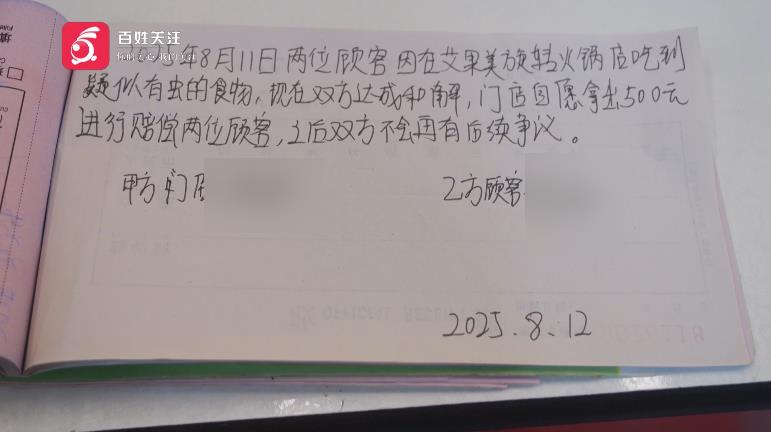 百姓关注
你的心声 我的关注
年8月11日两位顾客因在艾果美旋转火锅店吃到
疑似有虫的食物,现在双方达成和解,门店自愿拿出500元
进行赔偿两位顾客,之后双方不会再有后续争议。
甲方门店
乙方顾客
2025.8.12